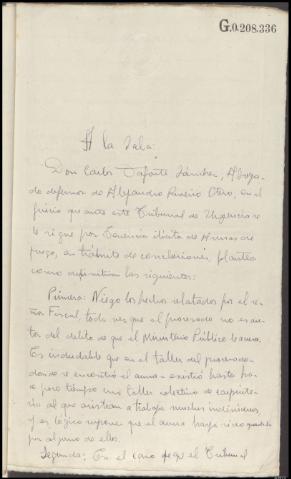 G.0.208.336
A la Sala:
Don Carlos Sánchez, Aboga-
do defensor de Alejandro Otero, en el
juicio que ante este Tribunal de Urgencia se
le sigue por tenencia ilícita de armas de
fuego, en trámite de conclusiones, plantea
como definitivas las siguientes:
Primera: Niego los hechos relatados por el se-
ñor Fiscal, toda vez que el procesado no es au-
tor del delito de que el Ministerio Público le acusa.
Es indudable que en el taller del procesado-
donde se encontró el arma- existió hasta ha-
ce poco tiempo un taller colectivo de carpinte-
ría al que asistían a trabajar muchos individuos,
y es lógico suponer que el arma haya sido
por alguno de ellos.
Segunda: En el caso de que el Tribunal